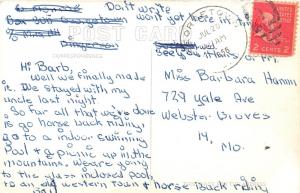 Don't write
won't get here in
POST CARD
JUL 20
AM
2 CENTS 2
Hi Barb,
Well we finally made
it. We stayed with my
uncle last night
So far all that we've done
is go horse back riding
go to a indoor swimming
Pool & a picnic up in the
mountains. We are going
to the glass indoor pool
to an old western town & horse back riding
Miss Barbara Hamm
729 Yale Ave
Webster Groves
14, Mo.